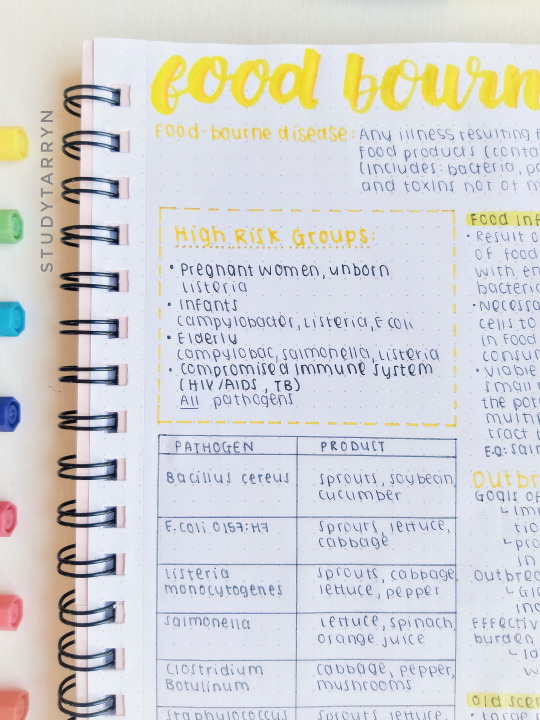 STUDYTARRYN
food bourn
Food-bourne disease: Any illness resulting f
food products (conta
(includes: bacteria, pa
and toxins not of m
High Risk Groups:
• Pregnant women, unborn
listeria
• Infants
campylobacter, listeria, E coli
• Elderly
campylobac, salmonella, listeria
• compromised immune system
(HIV/AIDS, TB)
All pathogens
PATHOGEN PRODUCT
Bacillus cereus sprouts, soybean,
cucumber
E.coli 0157:H7 sprouts, lettuce,
cabbage
listeria sprouts, cabbage,
monocytogenes lettuce, pepper
salmonella lettuce, spinach,
orange juice
Clostridium cabbage, pepper,
Botulinum mushrooms
staphylococcus sprouts, lettuce,
Food inf
• Result o
of food
with en
bacteria
• Necessa
cells to
in food
consum
• viable
small i
the pot
multip
tract t
E.g: sal
Outbr
Goals of
↳ imm
tio
↳ pro
in
outbrea
↳ Gl
inc
Effectiv
burden
↳ la
w
old scen